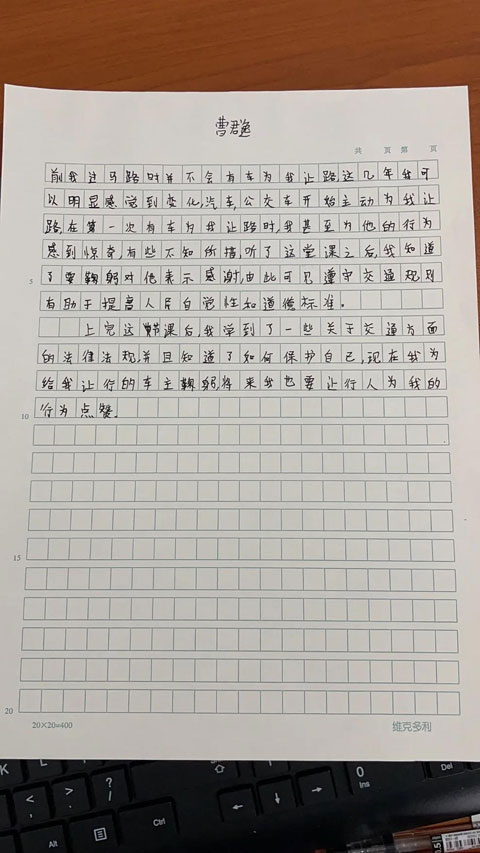 曹君逸
共 页 第 页
前我过马路时并不会有车为我让路,这几年我可
以明显感觉到变化,汽车,公交车开始主动为我让
路,在第一次有车为我让路时,我甚至为他的行为
感到惊奇,有些不知所措,听了这堂课之后,我知道
5
了要鞠躬对他表示感谢,由此可见遵守交通规则
有助于提高人民自觉性和道德标准。
上完这节课后我学到了一些关于交通方面
的法律法规并且知道了如何保护自己,现在我为
给我让行的车主鞠躬,将来我也要让行人为我的
10
行为点赞.
15
20
20×20=400
维克多利
K
L
Alt
Ctrl
0
Ins
Del